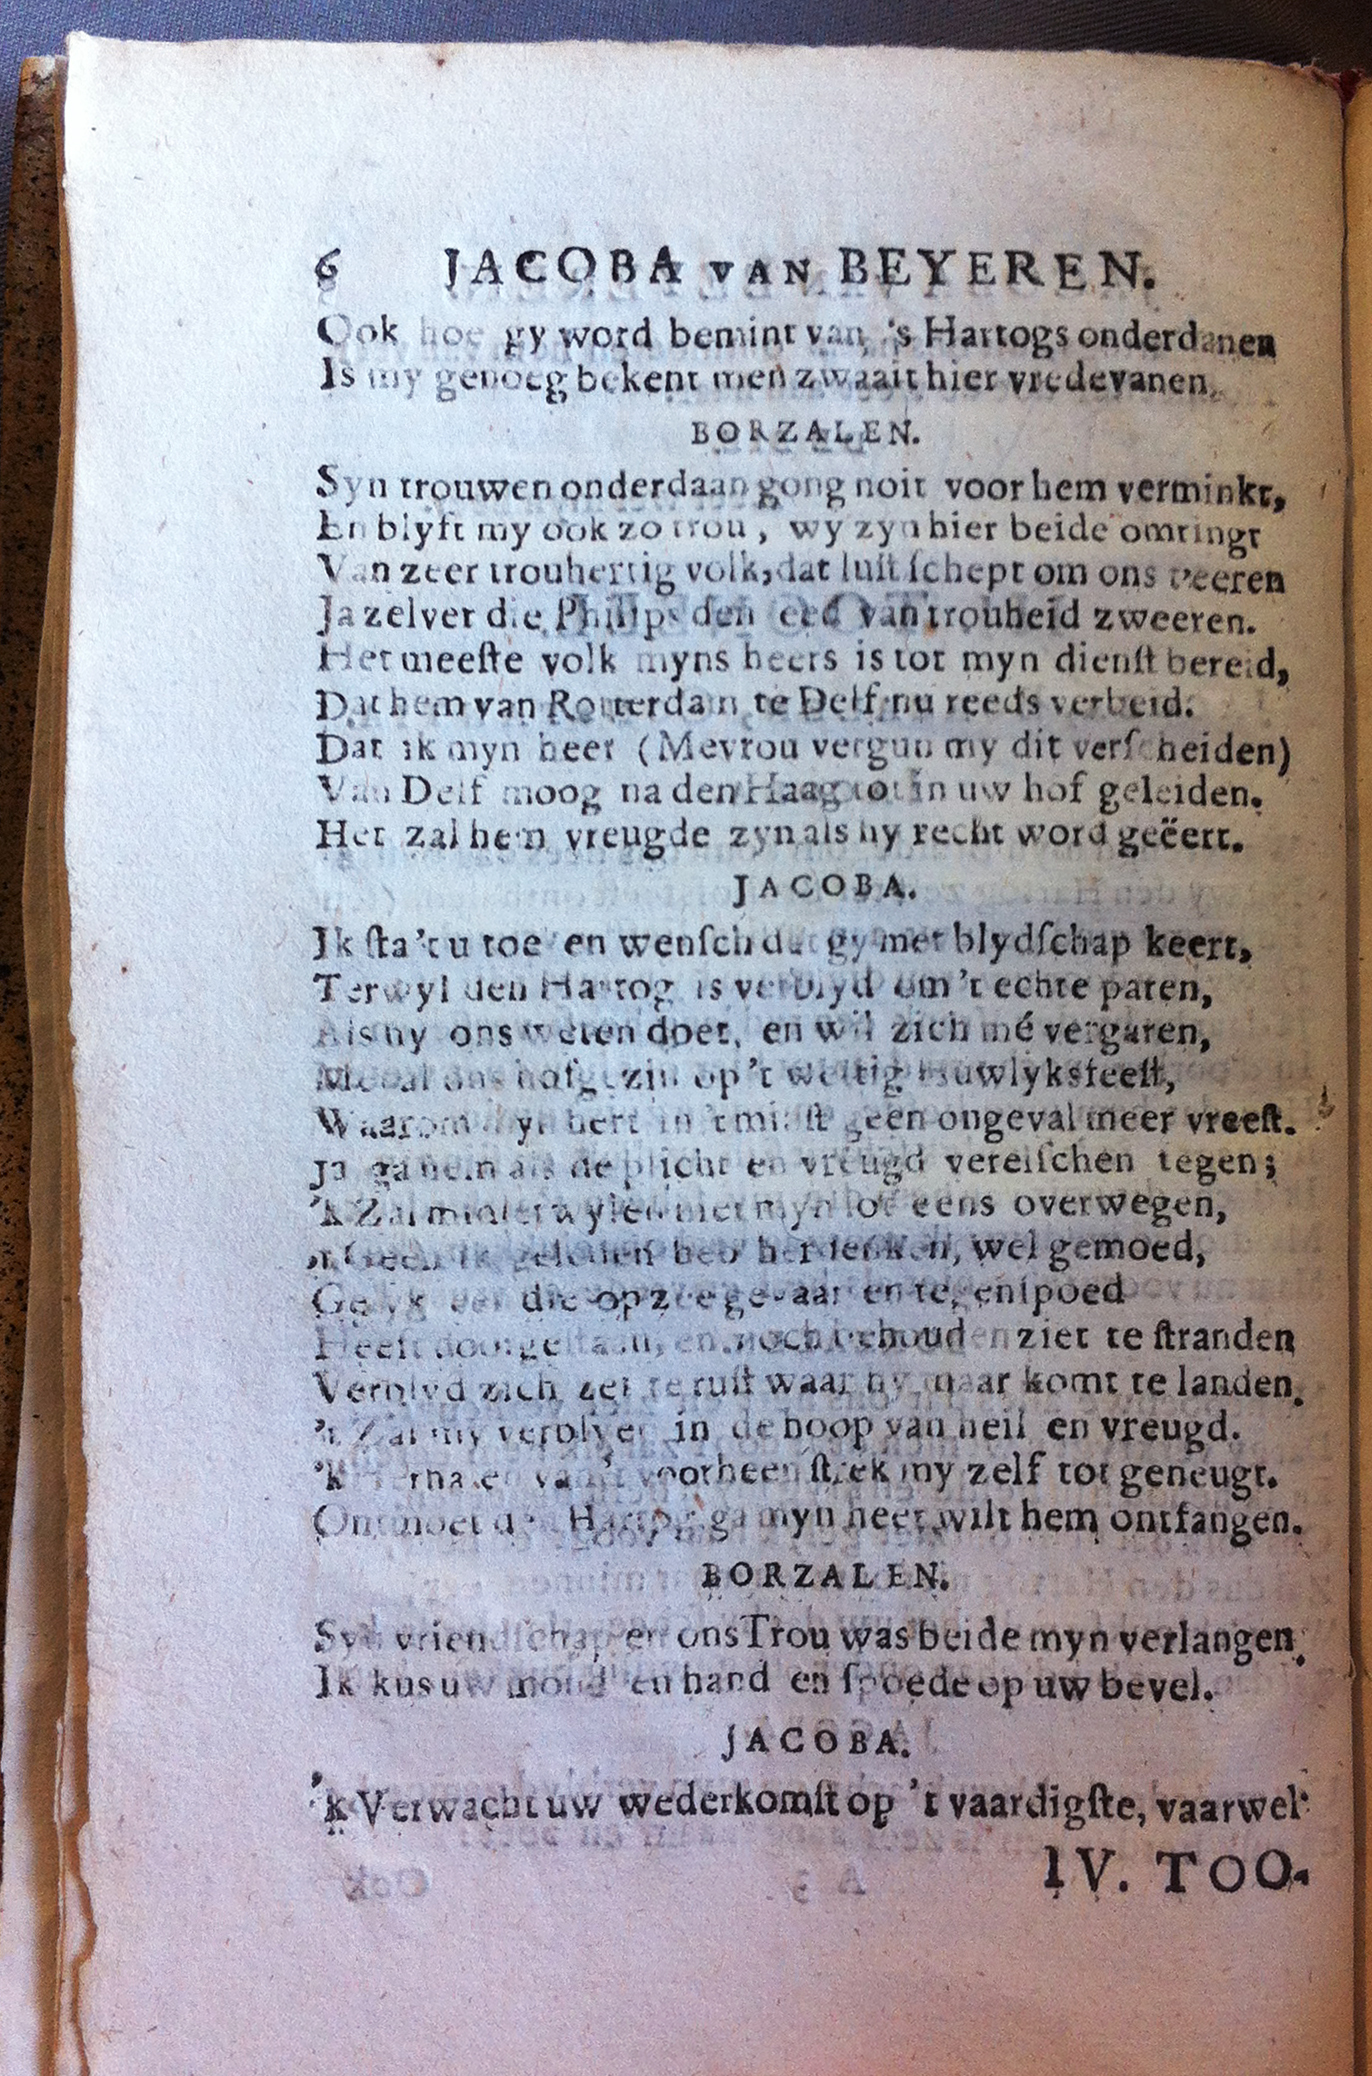 6 JACOBA VAN BEYEREN.
Ook hoe gy word bemint van 's Hartogs onderdanen
Is my genoeg bekent men zwaait hier vredevanen.
BORZALEN.
Syn trouwen onderdaan gong noit voor hem verminkt,
En blyft my ook zo trou, wy zyn hier beide omringt
Van zeer trouhertig volk, dat lust schept om ons teeren
Ja zelver die Philips den eed van trouheid zweeren.
Het meeste volk myns heers is tot myn dienst bereid,
Dat hem van Rotterdam te Delf nu reeds verbeid.
Dat ik myn heer (Mevrou vergun my dit verscheiden)
Van Delf moog na den Haag tot in uw hof geleiden.
Het zal hem vreugde zyn als hy recht word geëert.
JACOBA.
Ik sta 't u toe en wensch dat gy met blydschap keert,
Terwyl den Hartog is verblyd om 't echte paren,
Als hy ons weten doet, en wil zich mé vergaren,
Met al ons hofgezin op 't wettig Huwlyksfeest,
Waarom myn hert in 't minst geen ongeval meer vreest.
Ja ga hem als de plicht en vreugd vereischen tegen;
'k Zal minlerwylen met myn lot eens overwegen,
't Geen ik geleden heb herdenken, wel gemoed,
Gelyk een die op zee gevaar en tegenspoed
Heeft doorgestaan, en noch behouden ziet te stranden
Verblyd zich zet te rust waar hy maar komt te landen.
't Zal my verblyen in de hoop van heil en vreugd.
'k Herhalen van 't voorheen strek my zelf tot geneugt.
Ontmoet den Hartog ga myn heer wilt hem ontfangen.
BORZALEN.
Syn vriendschap en ons Trou was beide myn verlangen.
Ik kus uw mond en hand en spoede op uw bevel.
JACOBA.
'k Verwacht uw wederkomst op 't vaardigste, vaarwel
IV. TOO-